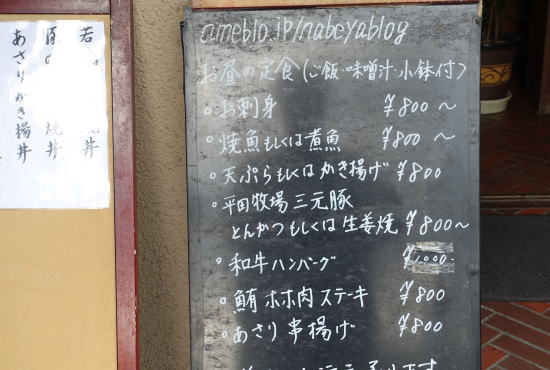 ameblo.jp/nabeyablog
お昼の定食(ご飯・味噌汁・小鉢付)
・お刺身 ¥800~
・焼魚もしくは煮魚 ¥800~
・天ぷらもしくはかき揚げ ¥800
・平田牧場三元豚
とんかつもしくは生姜焼 ¥800~
・和牛ハンバーグ ¥1,000-
・鮪ホホ肉ステーキ ¥800
・あさり串揚げ ¥800
若 丼
豚 焼丼
あさりかき揚丼